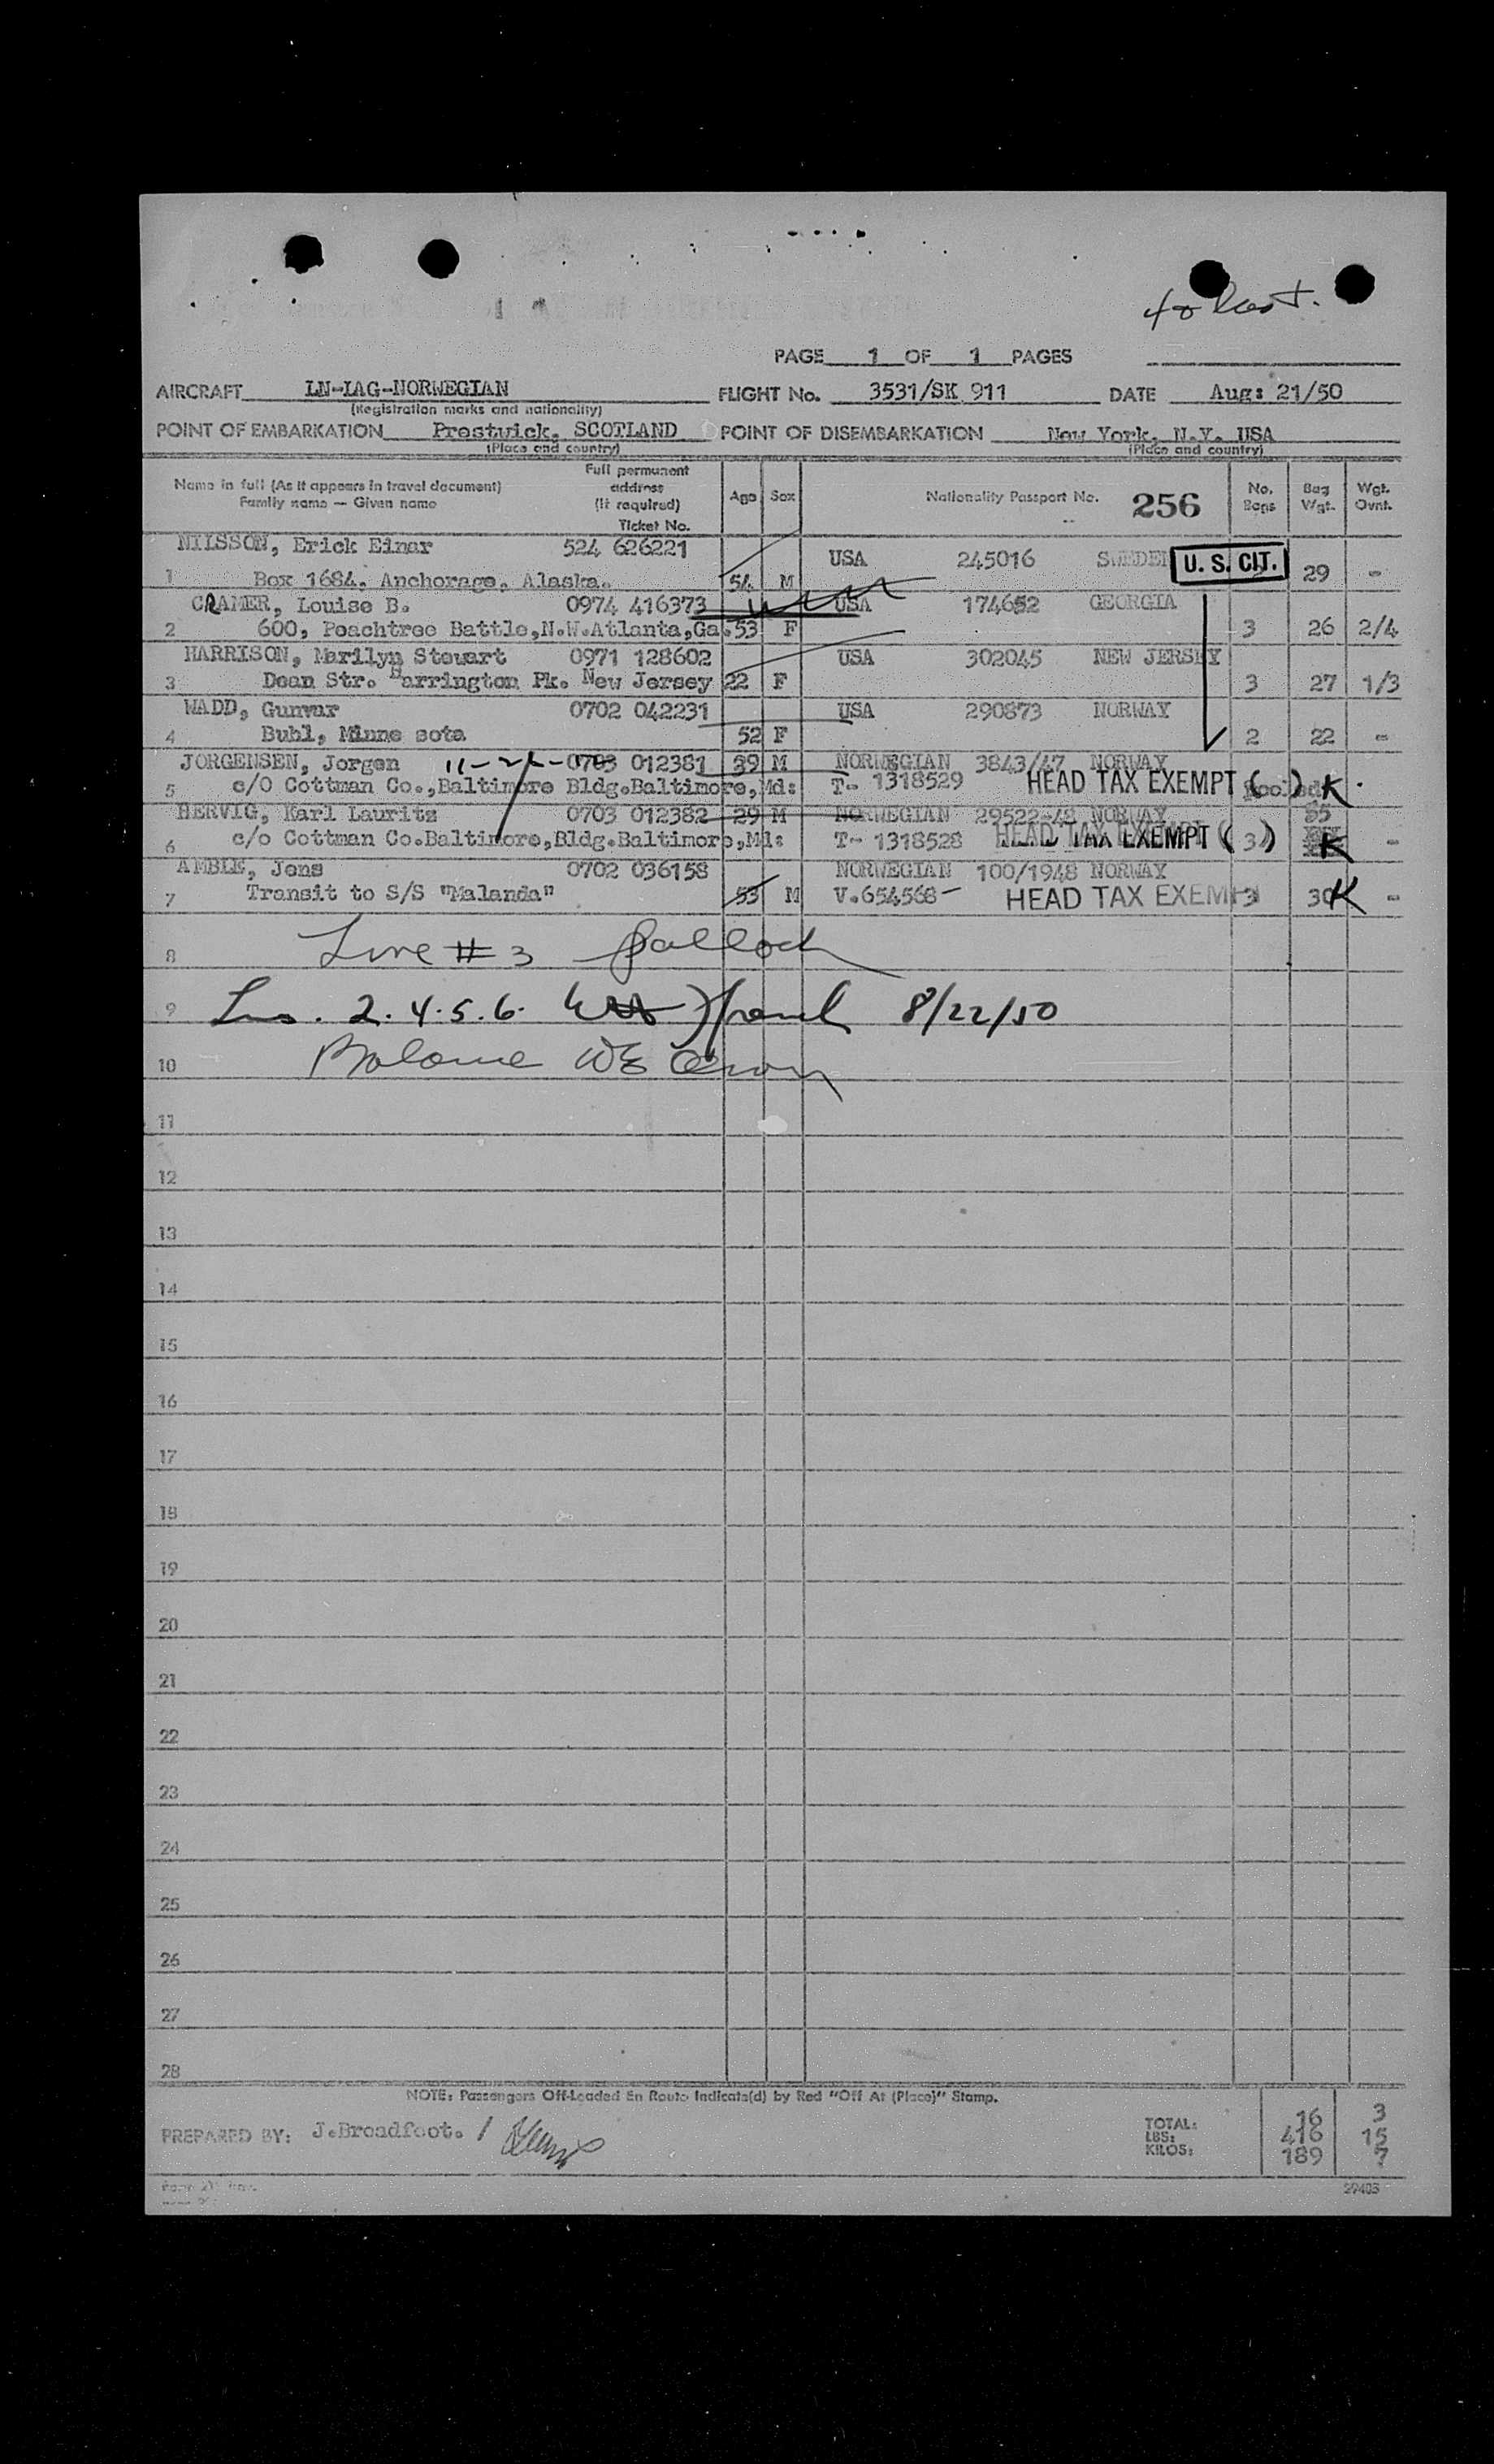 PAGE 1 OF 1 PAGES
AIRCRAFT LN-IAG-NORWEGIAN FLIGHT No. 3531/SK 911 DATE Aug: 21/50
(Registration marks and nationality)
POINT OF EMBARKATION Prestwick, SCOTLAND POINT OF DISEMBARKATION New York, N.Y. USA
(Place and country) (Place and country)
Name in full (As it appears in travel document) Family name — Given name Full permanent address (If required) Ticket No. Age Sex Nationality Passport No. 256 No. Bags Bag Wgt. Wgt. Ovnt.
NILSSON, Erick Einar 524 626221 USA 245016 U. S. CIT.
1 Box 1684, Anchorage, Alaska. 54 M 29 -
CRAMER, Louise B. 0974 416373 USA 174652 GEORGIA
2 600, Peachtree Battle,N.W.Atlanta,Ga. 53 F 3 26 2/4
HARRISON, Marilyn Stewart 0971 128602 USA 302045 NEW JERSEY
3 Dean Str. Harrington Pk. New Jersey 22 F 3 27 1/3
WADD, Gunvar 0702 042231 USA 290873 NORWAY
4 Buhl, Minne sota 52 F 2 22 -
JORGENSEN, Jorgen 0703 012381 39 M NORWEGIAN 3843/47 NORWAY
5 c/O Cottman Co.,Baltimore Bldg.Baltimore,Md: T- 1318529 HEAD TAX EXEMPT ( ) K
HERVIG, Karl Lauritz 0703 012382 29 M NORWEGIAN 29522-48 NORWAY 55
6 c/o Cottman Co.Baltimore,Bldg.Baltimore,Md: T- 1318528 HEAD TAX EXEMPT ( 3 ) K -
AMBLE, Jens 0702 036158 NORWEGIAN 100/1948 NORWAY
7 Transit to S/S "Malanda" 53 M V.654568- HEAD TAX EXEMPT 3 30 K -
8 Line # 3
9 2. 4. 5. 6. 8/22/50
10
11
12
13
14
15
16
17
18
19
20
21
22
23
24
25
26
27
28
NOTE: Passengers Off-Loaded En Route Indicate(d) by Red "Off At (Place)" Stamp.
PREPARED BY: J.Broadfoot. /
TOTAL: 16 3
LBS: 416 15
KILOS: 189 7
29403